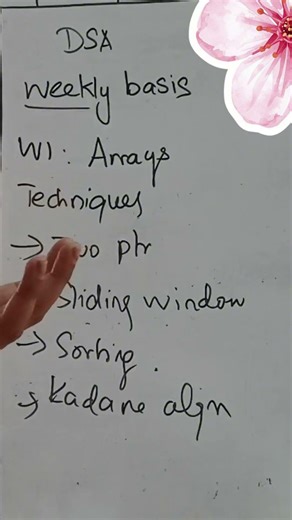 DSA
weekly basis
W1: Arrays
Techniques
→ Two ptr
sliding window
→ Sorting
→ Kadane algm